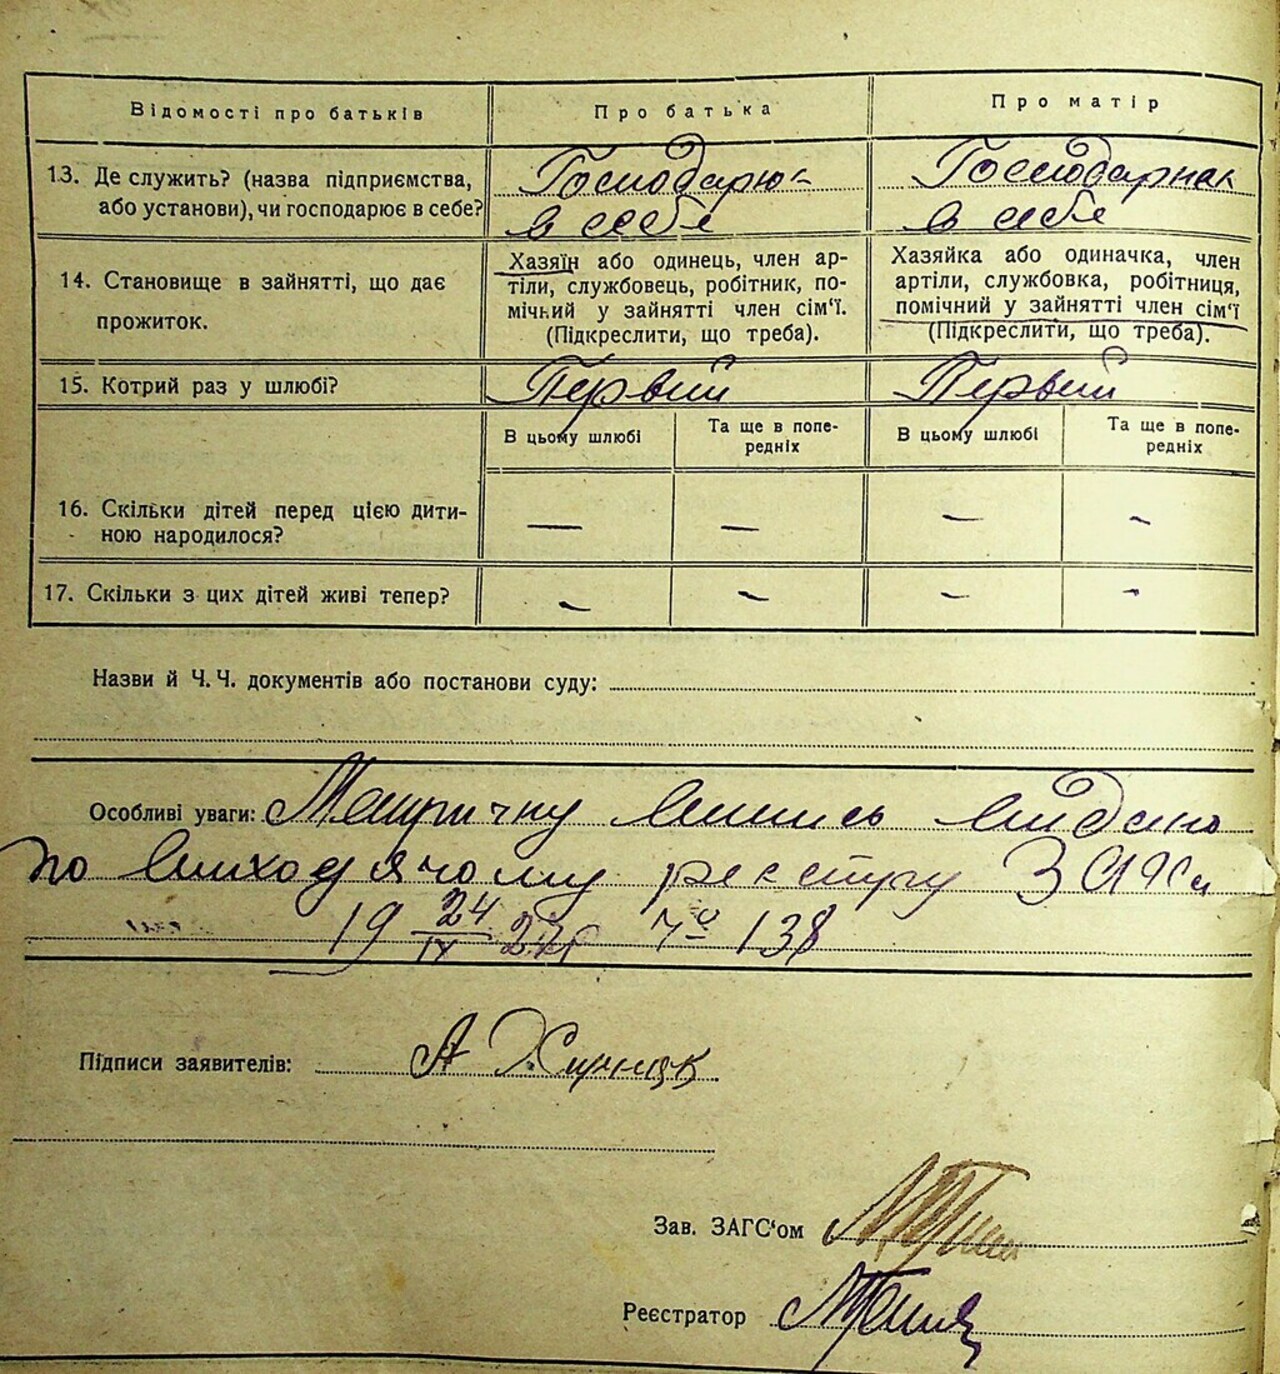 Відомості про батьків
Про батька
Про матір
13. Де служить? (назва підприємства,
або установи), чи господарює в себе?
Господарює
в себе
Господарює
в себе
14. Становище в зайнятті, що дає
прожиток.
Хазяїн або одинець, член ар-
тіли, службовець, робітник, по-
мічний у зайнятті член сім'ї.
(Підкреслити, що треба).
Хазяйка або одиначка, член
артіли, службовка, робітниця,
помічний у зайнятті член сім'ї
(Підкреслити, що треба).
15. Котрий раз у шлюбі?
Первий
Первий
В цьому шлюбі
Та ще в попе-
редніх
В цьому шлюбі
Та ще в попе-
редніх
16. Скільки дітей перед цією дити-
ною народилося?
— — — —
17. Скільки з цих дітей живі тепер?
— — — —
Назви й Ч. Ч. документів або постанови суду:
Особливі уваги: Метричну випись видано
по виходячому реєстру ЗАГСа
19 24/IX 27р № 138
Підписи заявителів: А
Зав. ЗАГС'ом
Реєстратор